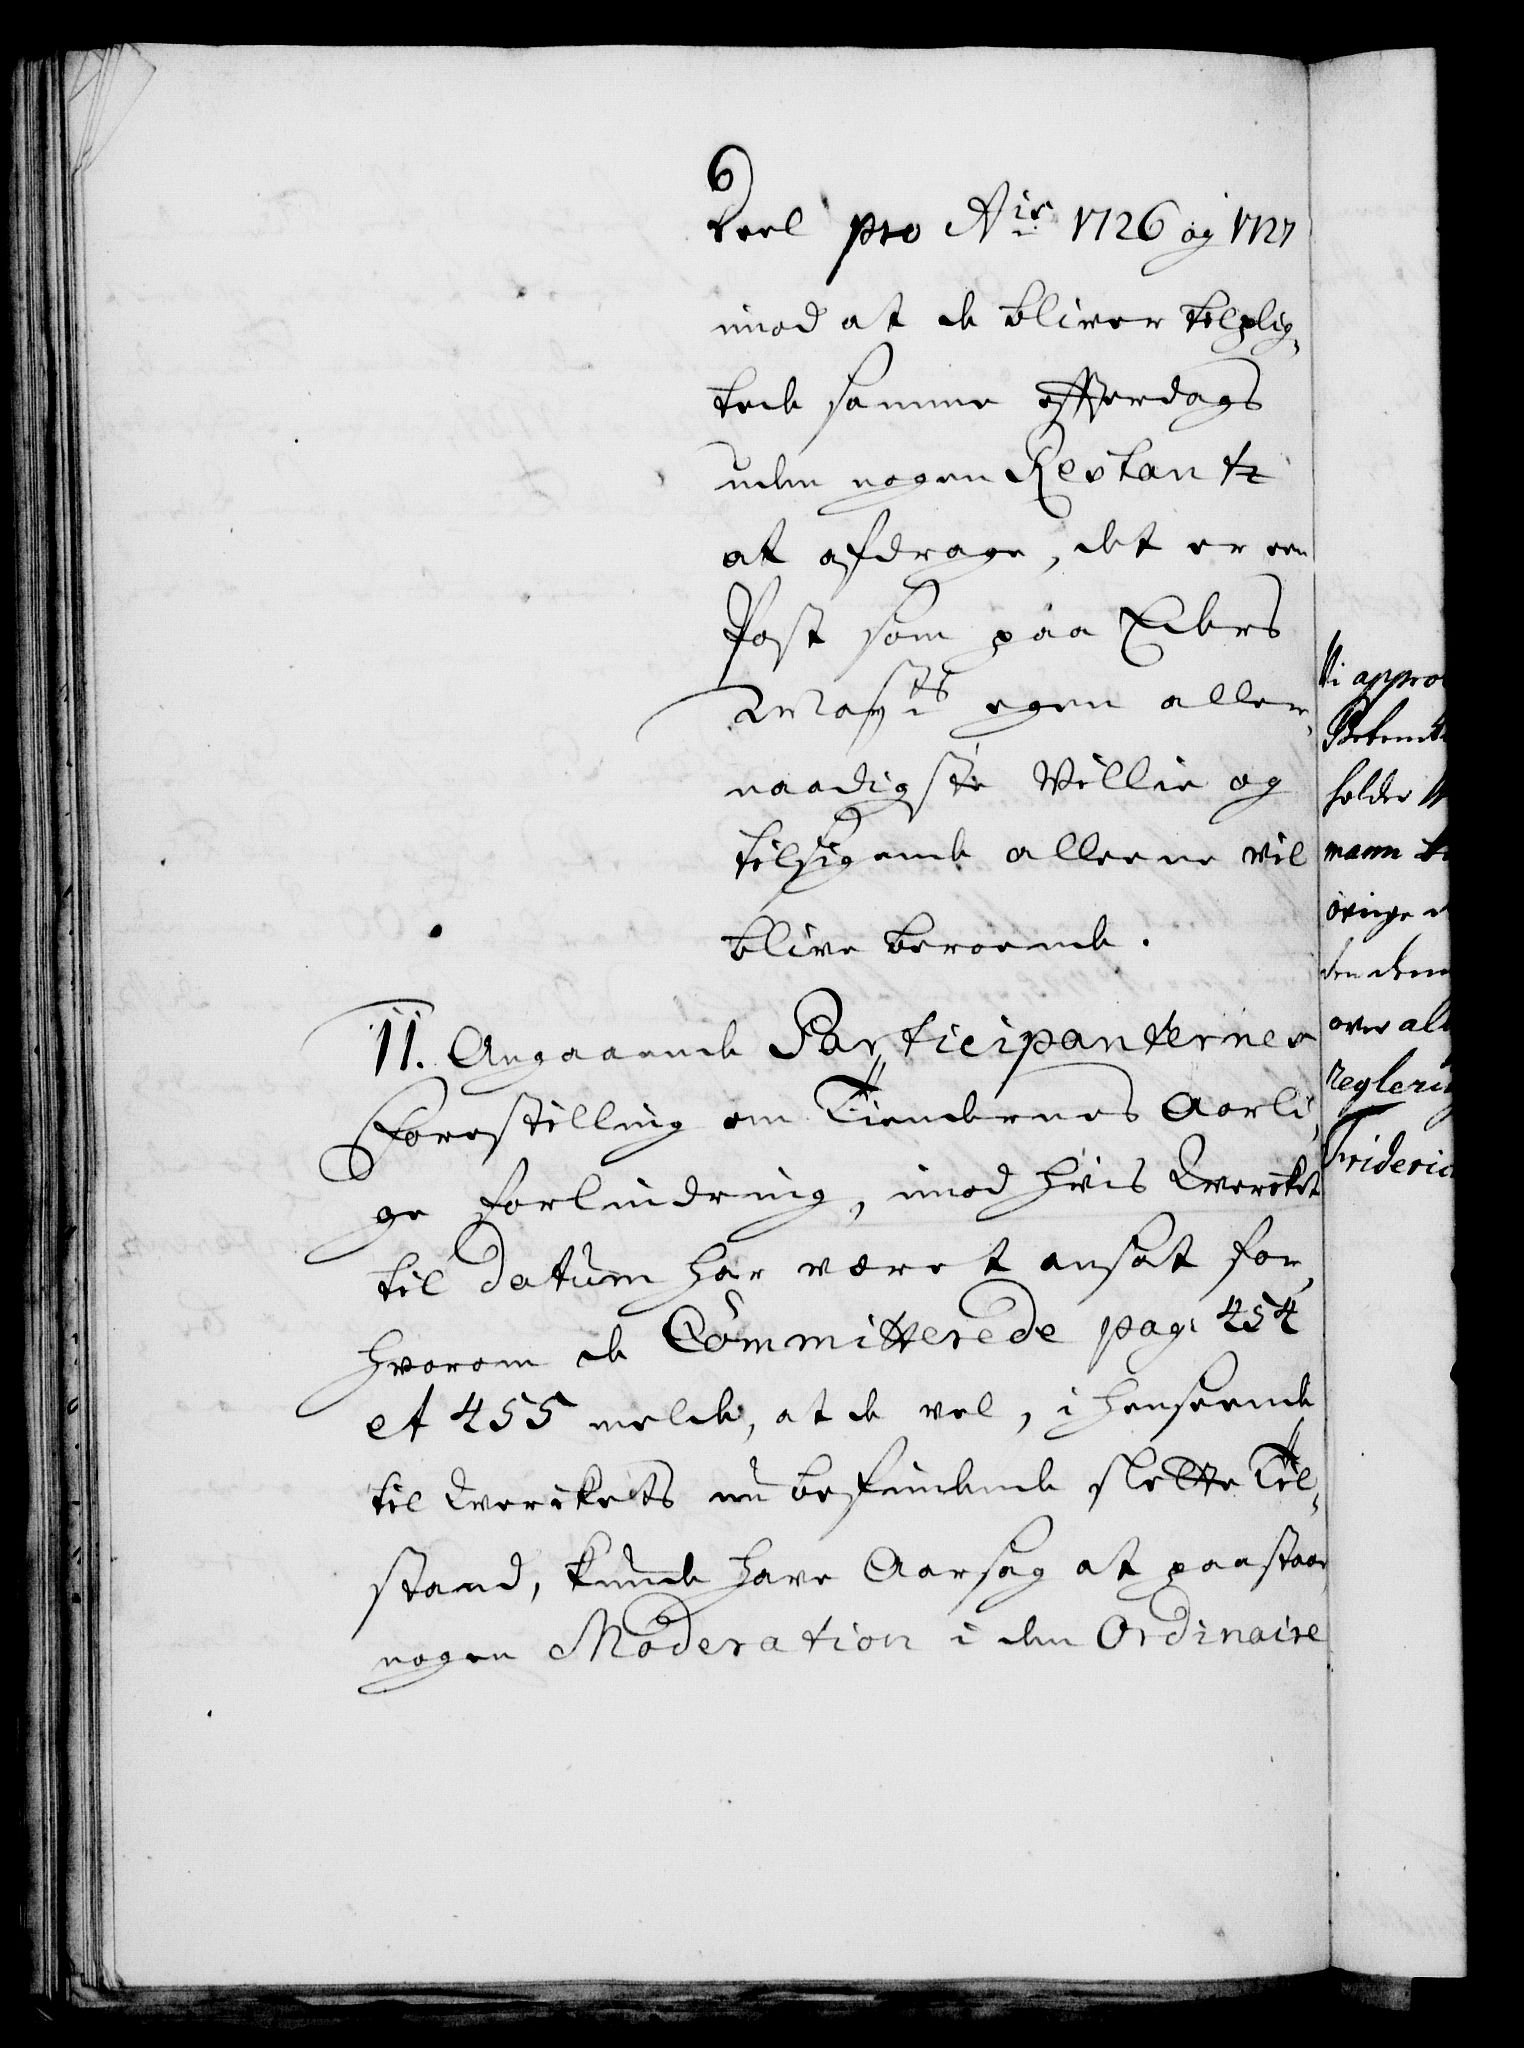 deel pro Ais 1726 og 1727
imod at de bliver tilplig-
tede samme efferdags
uden nogen Restantz
at afdrage, det er een
Post som paa Eders
Mayts egen aller-
naadigste Villie og
tilsigende alleene vil
blive beroende.
11. Angaaende Participanternes
Forestilling om Tiendernes Aarli-
ge forlindring, imod hvis Verket
til datum har været ansat for,
hvorom de Committerede pag: 454
et 455 melde, at de vel, i henseende
til Verckets nu befindende slette Til-
stand, kunde have Aarsag at paastaae
nogen Moderation i den Ordinaire
Vi appro
holder
mann
øvrige
over al
reglerin
Frideric